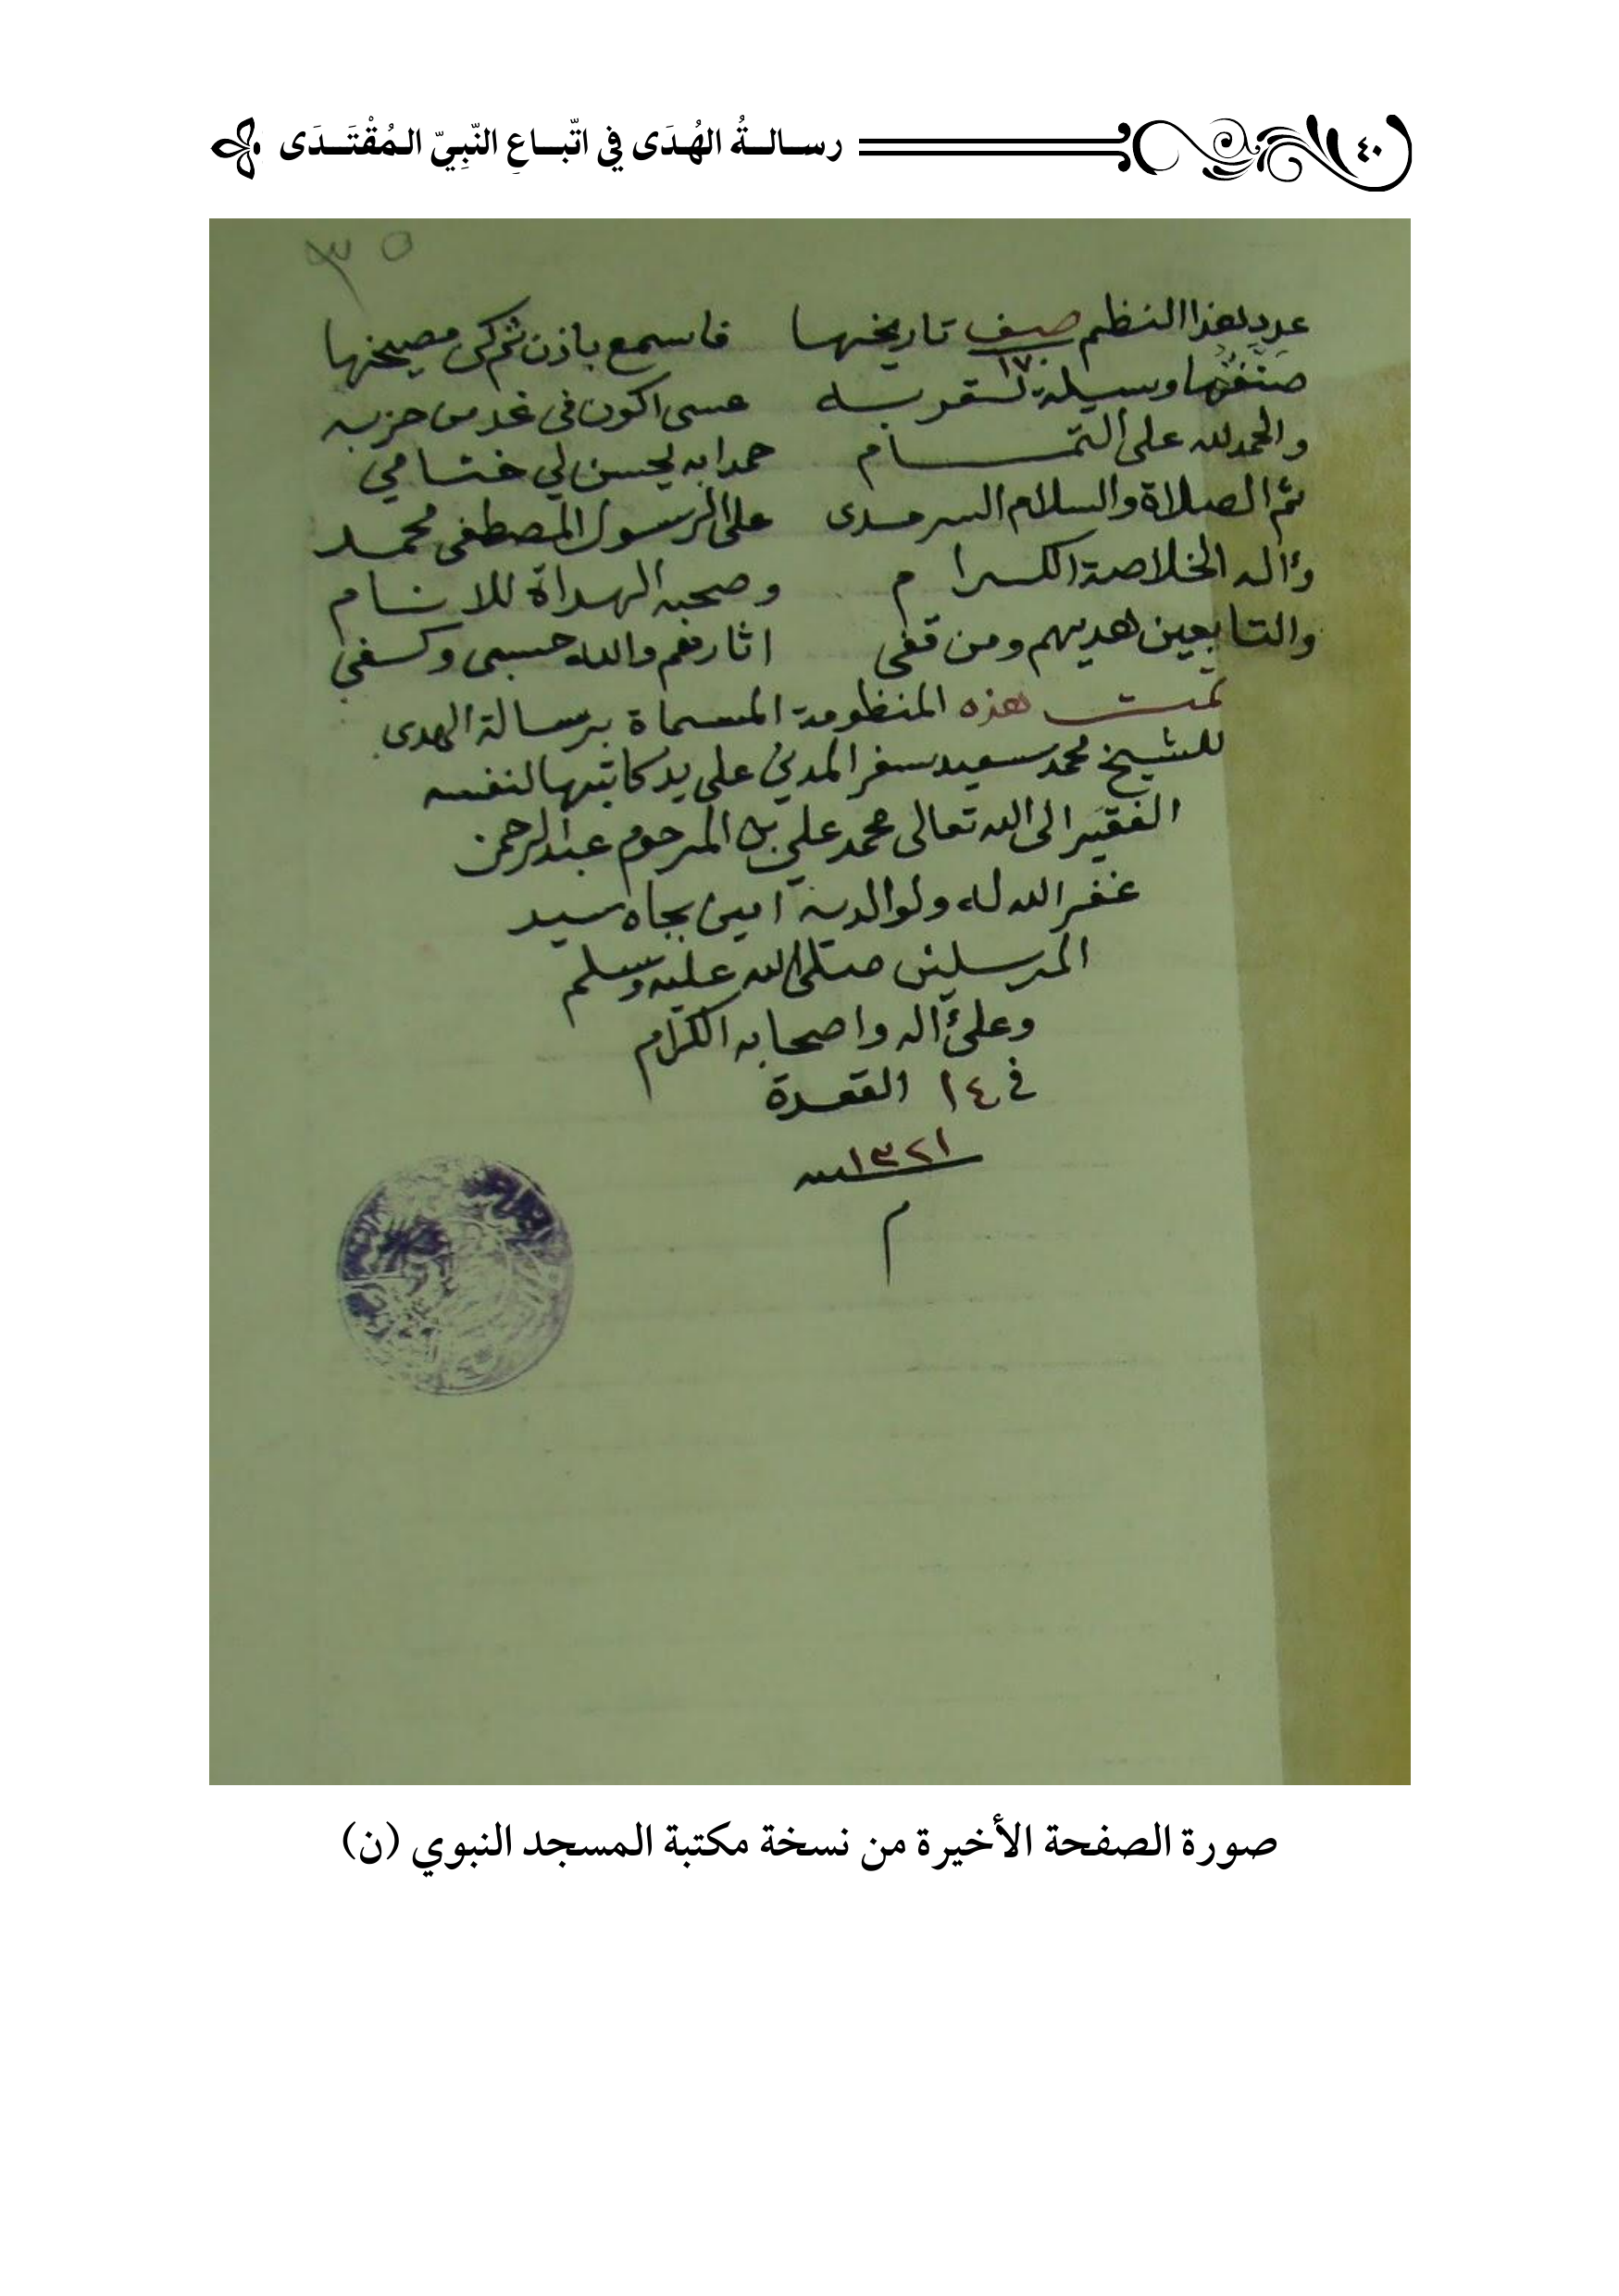 ٤٠
رسالةُ الهُدَى في اتّباعِ النّبِيّ المُقْتَدَى
٣٥
النظم صيف تاريخها فاسمع باذن ثم كن مصيخها
١٧٠
صنفتها وسيلة لقربه عسى اكون في غد من حزبه
والحمد لله على التمام حمدا به يحسن لي ختامي
ثم الصلاة والسلام السرمدى على الرسول المصطفى محمد
وآله الخلاصة الكرام وصحبه الهداة للانام
والتابعين هديهم ومن قفى اثارهم والله حسبى وكفي
تمت هذه المنظومة المسماة برسالة الهدى
للشيخ محمد سعيد سفر المدني على يد كاتبها لنفسه
الفقير الى الله تعالى محمد علي بن المرحوم عبدالرحمن
غفر الله له ولوالديه امين بجاه سيد
المرسلين صلى الله عليه وسلم
وعلى آله واصحابه الكرام
في ١٤ القعدة
١٣٢١
م
صورة الصفحة الأخيرة من نسخة مكتبة المسجد النبوي (ن)